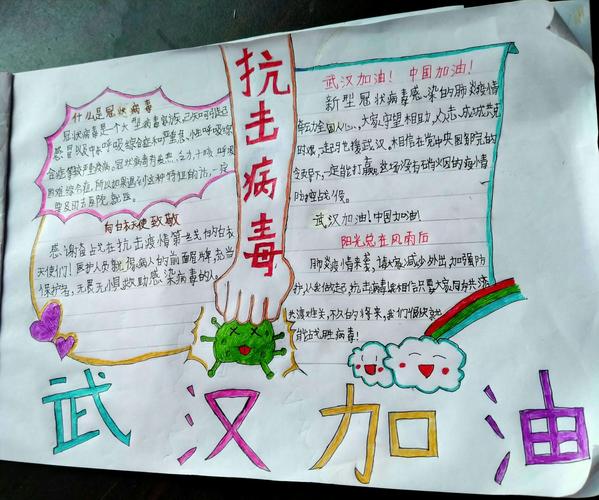 抗击病毒
什么是冠状病毒
冠状病毒是一个大型病毒家族,已知可引起
感冒以及中东呼吸综合征和严重急性呼吸综
合征等较严重疾病。冠状病毒有发热、乏力、干咳、呼吸
困难等症,所以如果遇到这种特征的话,一定
要及时去医院就医。
向白衣天使致敬
感谢奋战在抗击疫情第一线的白衣
天使们!医护人员就得病人的前面屏障,充当
保护者,无畏无惧救助感染病毒的人。
武汉加油!中国加油!
新型冠状病毒感染的肺炎疫情
牵动全国人心,大家守望相助,众志成城共克
时艰,一起支援武汉。相信在党中央国务院的
领导下,一定能打赢这场没有硝烟的疫情
防控战役。
武汉加油!中国加油!
阳光总在风雨后
肺炎疫情来袭,请大家减少外出,加强防
护,从我做起,抗击病毒!我相信只要大家同舟共济
共渡难关,不久的将来,我们很快就
能战胜病毒!
武汉加油